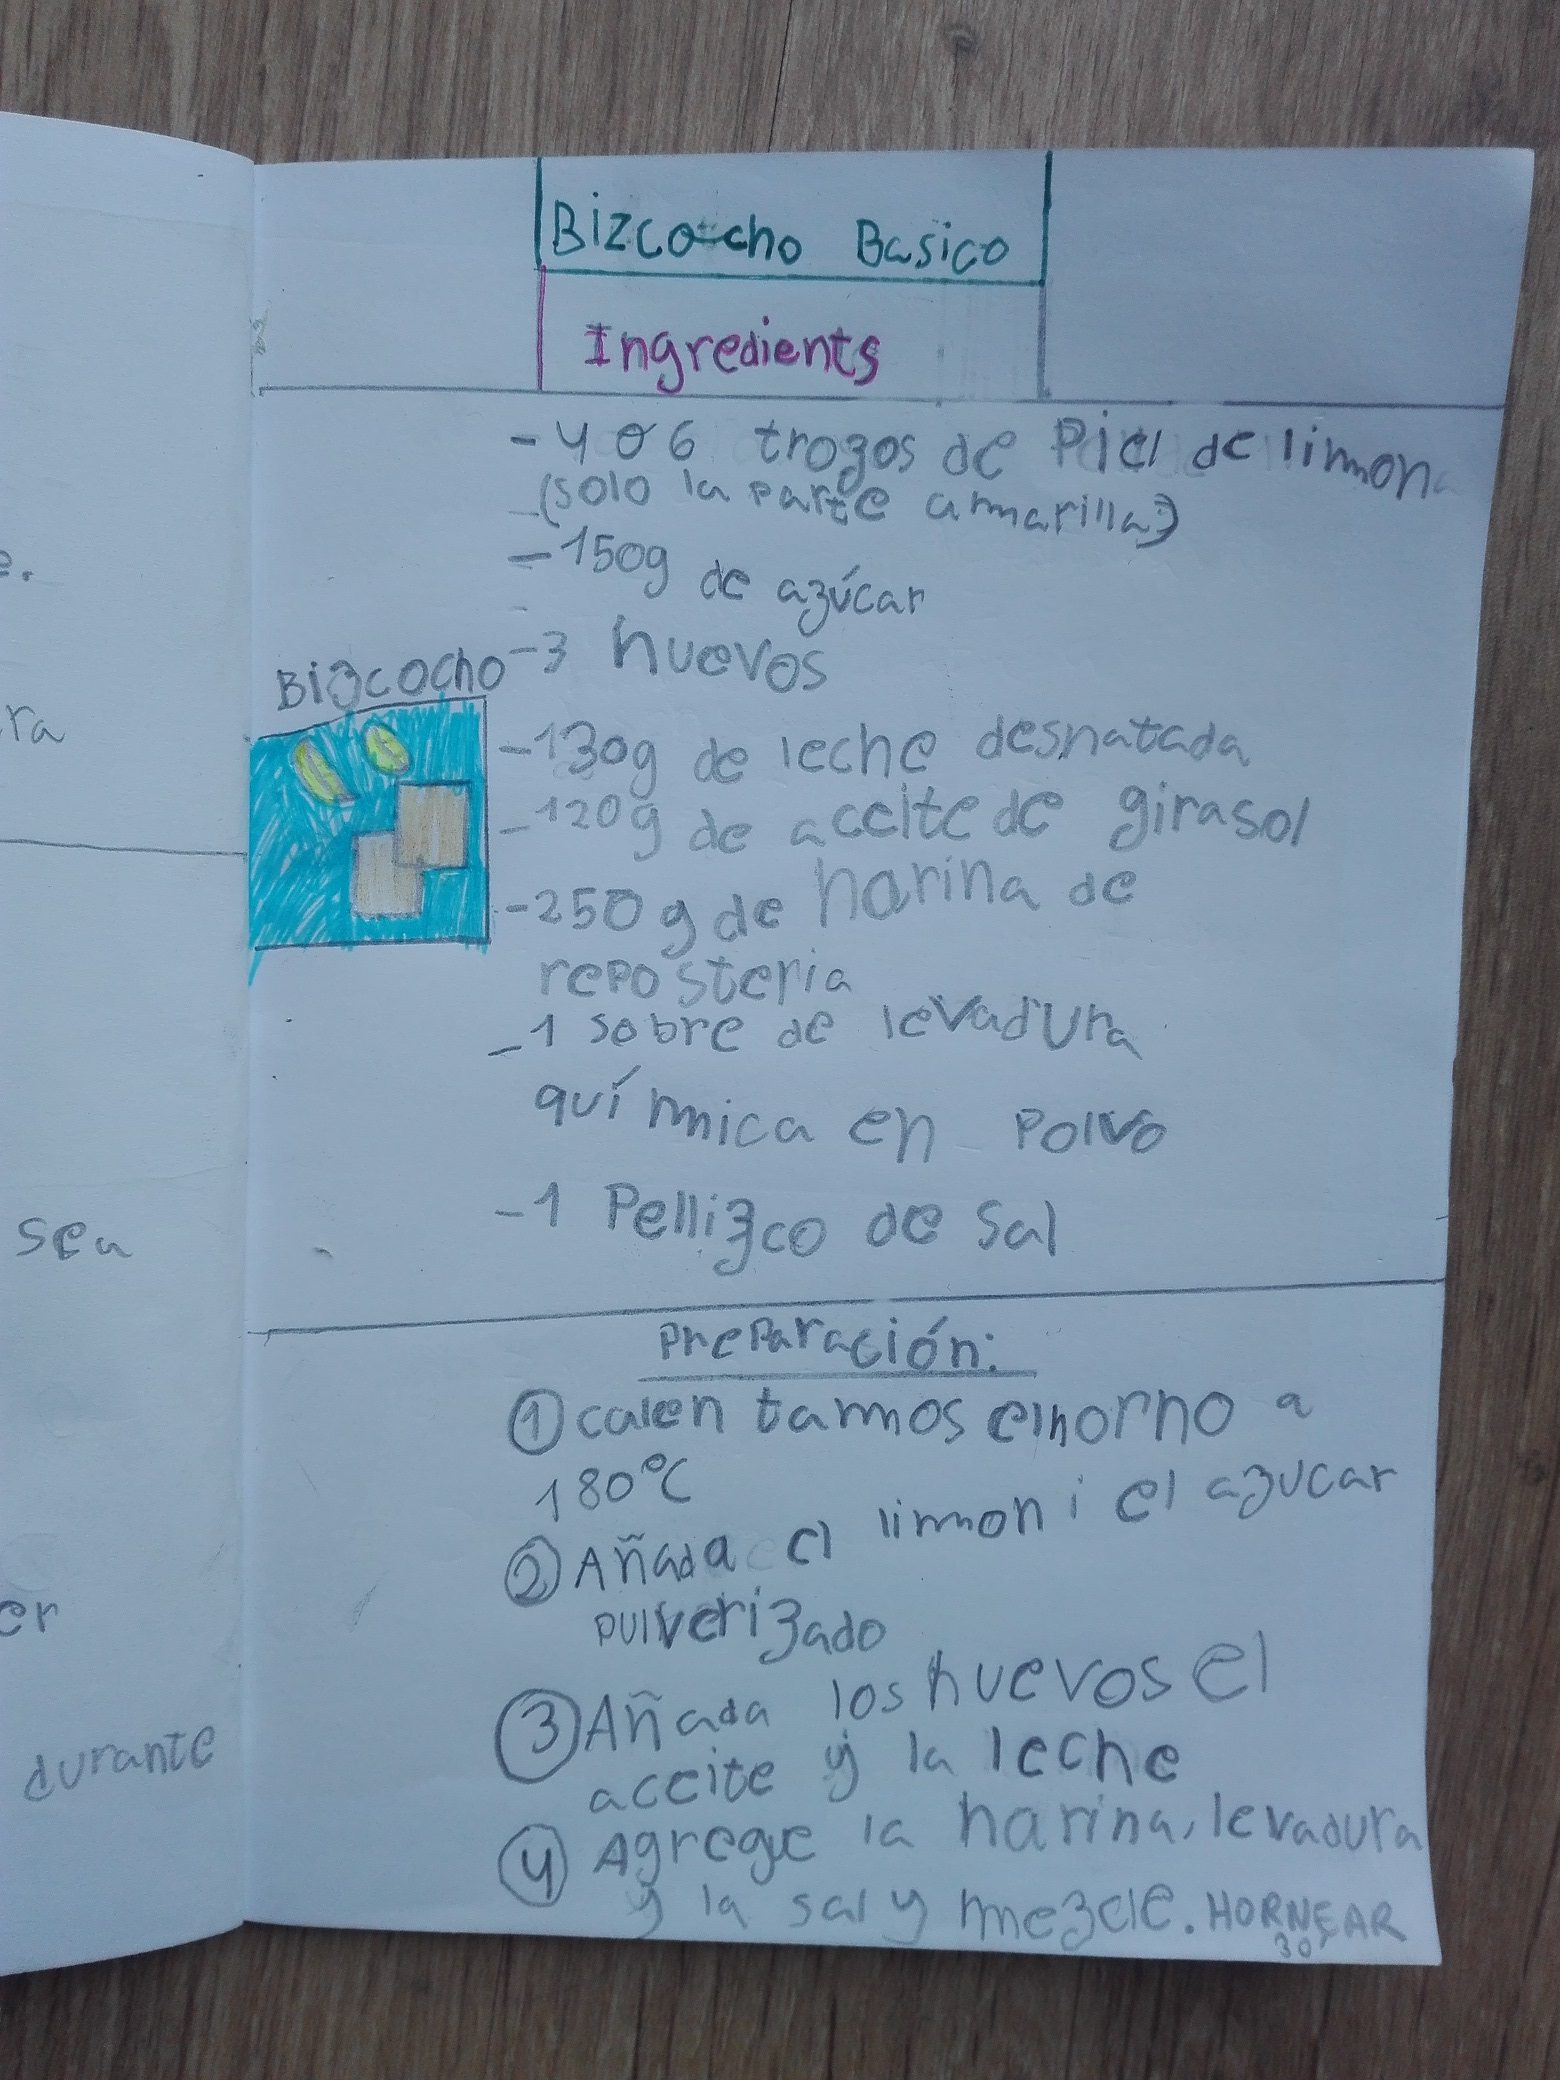 e.
ra
sea
er
durante
Bizcocho Basico
Ingredients
- 4 o 6 trozos de Piel de limon
(solo la parte amarilla)
- 150g de azúcar
- 3 huevos
Bizcocho
- 130g de leche desnatada
- 120g de aceite de girasol
- 250g de harina de
reposteria
- 1 sobre de levadura
química en polvo
- 1 Pellizco de sal
Preparación:
1 calentamos el horno a
180°C
2 Añada el limon i el azucar
pulverizado
3 Añada los huevos el
aceite y la leche
4 Agregue la harina, levadura
y la sal y mezcle. HORNEAR
30'